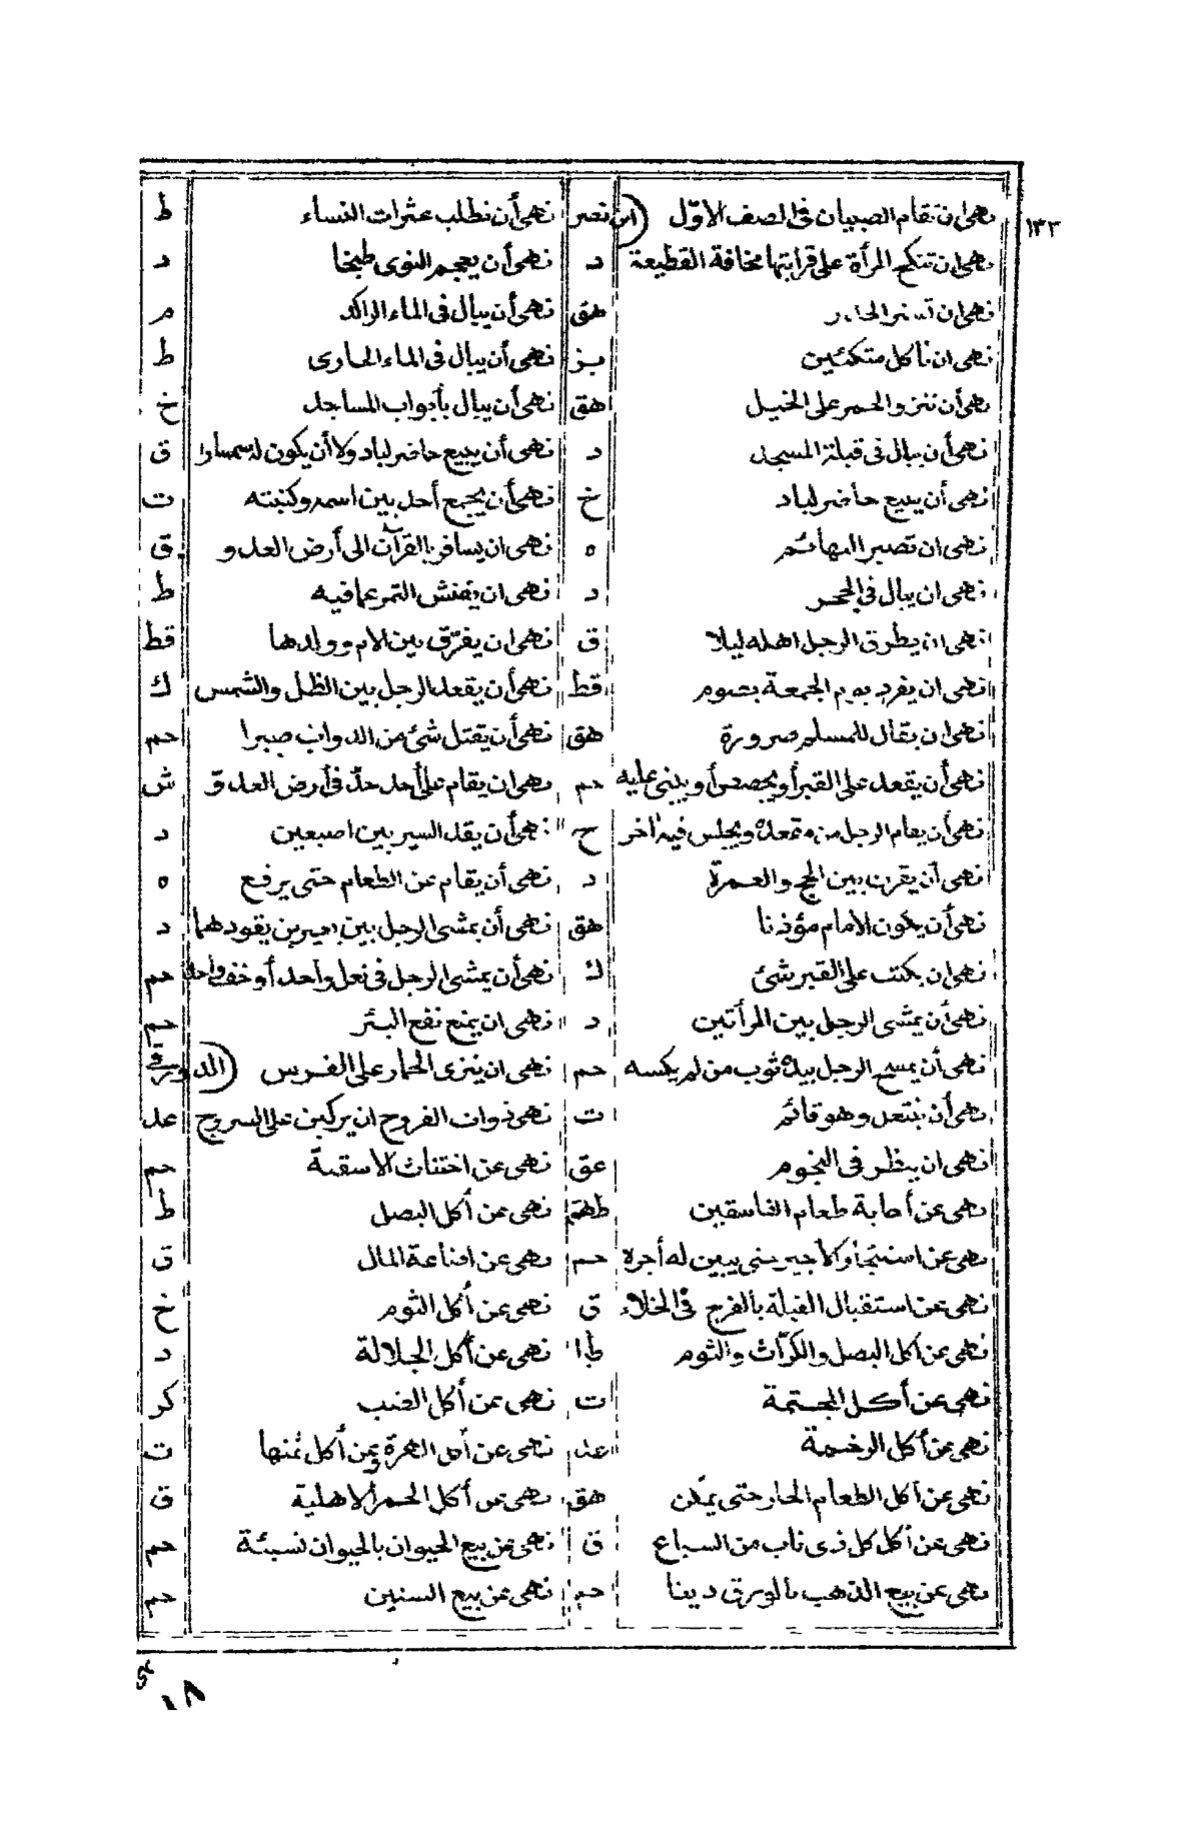 ١٣٣
نهى ان تقام الصبيان فى الصف الاوّل (ابن نصر نهى أن تطلب عثرات النساء ط
نهى ان تنكح المرأة على قرابتها مخافة القطيعة د نهى أن يعجم النوى طبخا د
نهى ان تستر الجدر هق نهى أن يبال فى الماء الراكد م
نهى ان نأكل متكئين بز نهى أن يبال فى الماء الجارى ط
نهى أن ننزو الحمر على الخيل هق نهى أن يبال بأبواب المساجد خ
نهى أن يبال فى قبلة المسجد د نهى أن يبيع حاضر لباد ولا أن يكون له سمسارا ق
نهى أن يبيع حاضر لباد خ نهى أن يجمع أحد بين اسمه وكنيته ت
نهى ان تصبر البهائم ه نهى ان يسافر بالقرآن الى أرض العدو ق
نهى ان يبال فى الجحر د نهى ان يفتش التمر عما فيه ط
نهى ان يطرق الرجل اهله ليلا ق نهى ان يفرّق بين الام وولدها قط
نهى ان يفرد يوم الجمعة بصوم قط نهى أن يقعد الرجل بين الظل والشمس ك
نهى ان يقال للمسلم صرورة هق نهى أن يقتل شئ من الدواب صبرا حم
نهى أن يقعد على القبر أو يجصص أو يبنى عليه حم نهى ان يقام على أحد حدّ فى أرض العدوّ ش
نهى أن يقام الرجل من مقعده ويجلس فيه آخر خ نهى أن يقد السير بين اصبعين د
نهى أن يقرن بين الحج والعمرة د نهى أن يقام عن الطعام حتى يرفع ه
نهى أن يكون الامام مؤذنا هق نهى أن يمشى الرجل بين بعيرين يقودهما د
نهى ان يكتب على القبر شئ ك نهى أن يمشى الرجل فى نعل واحد أو خف واحد حم
نهى أن يمشى الرجل بين المرأتين د نهى ان يمنع نقع البئر حم
نهى أن يمسح الرجل بيده ثوب من لم يكسه حم نهى ان ينزى الحمار على الفرس (الدورقى
نهى أن ينتعل وهو قائم ت نهى ذوات الفروج ان يركبن على السروج عد
نهى ان ينظر فى النجوم عق نهى عن اختناث الاسقية حم
نهى عن اجابة طعام الفاسقين طهم نهى عن أكل البصل ط
نهى عن استئجار الاجير حتى يبين له أجره حم نهى عن اضاعة المال ق
نهى عن استقبال القبلة بالفرج فى الخلاء ق نهى عن أكل الثوم خ
نهى عن اكل البصل والكرّاث والثوم ط نهى عن أكل الجلالة د
نهى عن أكل المجثمة ت نهى عن أكل الضب كر
نهى عن أكل الرخمة عد نهى عن أكل الهرة وعن أكل ثمنها ت
نهى عن اكل الطعام الحار حتى يمكن هق نهى عن أكل الحمر الاهلية ق
نهى عن اكل كل ذى ناب من السباع ق نهى عن بيع الحيوان بالحيوان نسيئة حم
نهى عن بيع الذهب بالورق دينا حم نهى عن بيع السنين حم
١٨